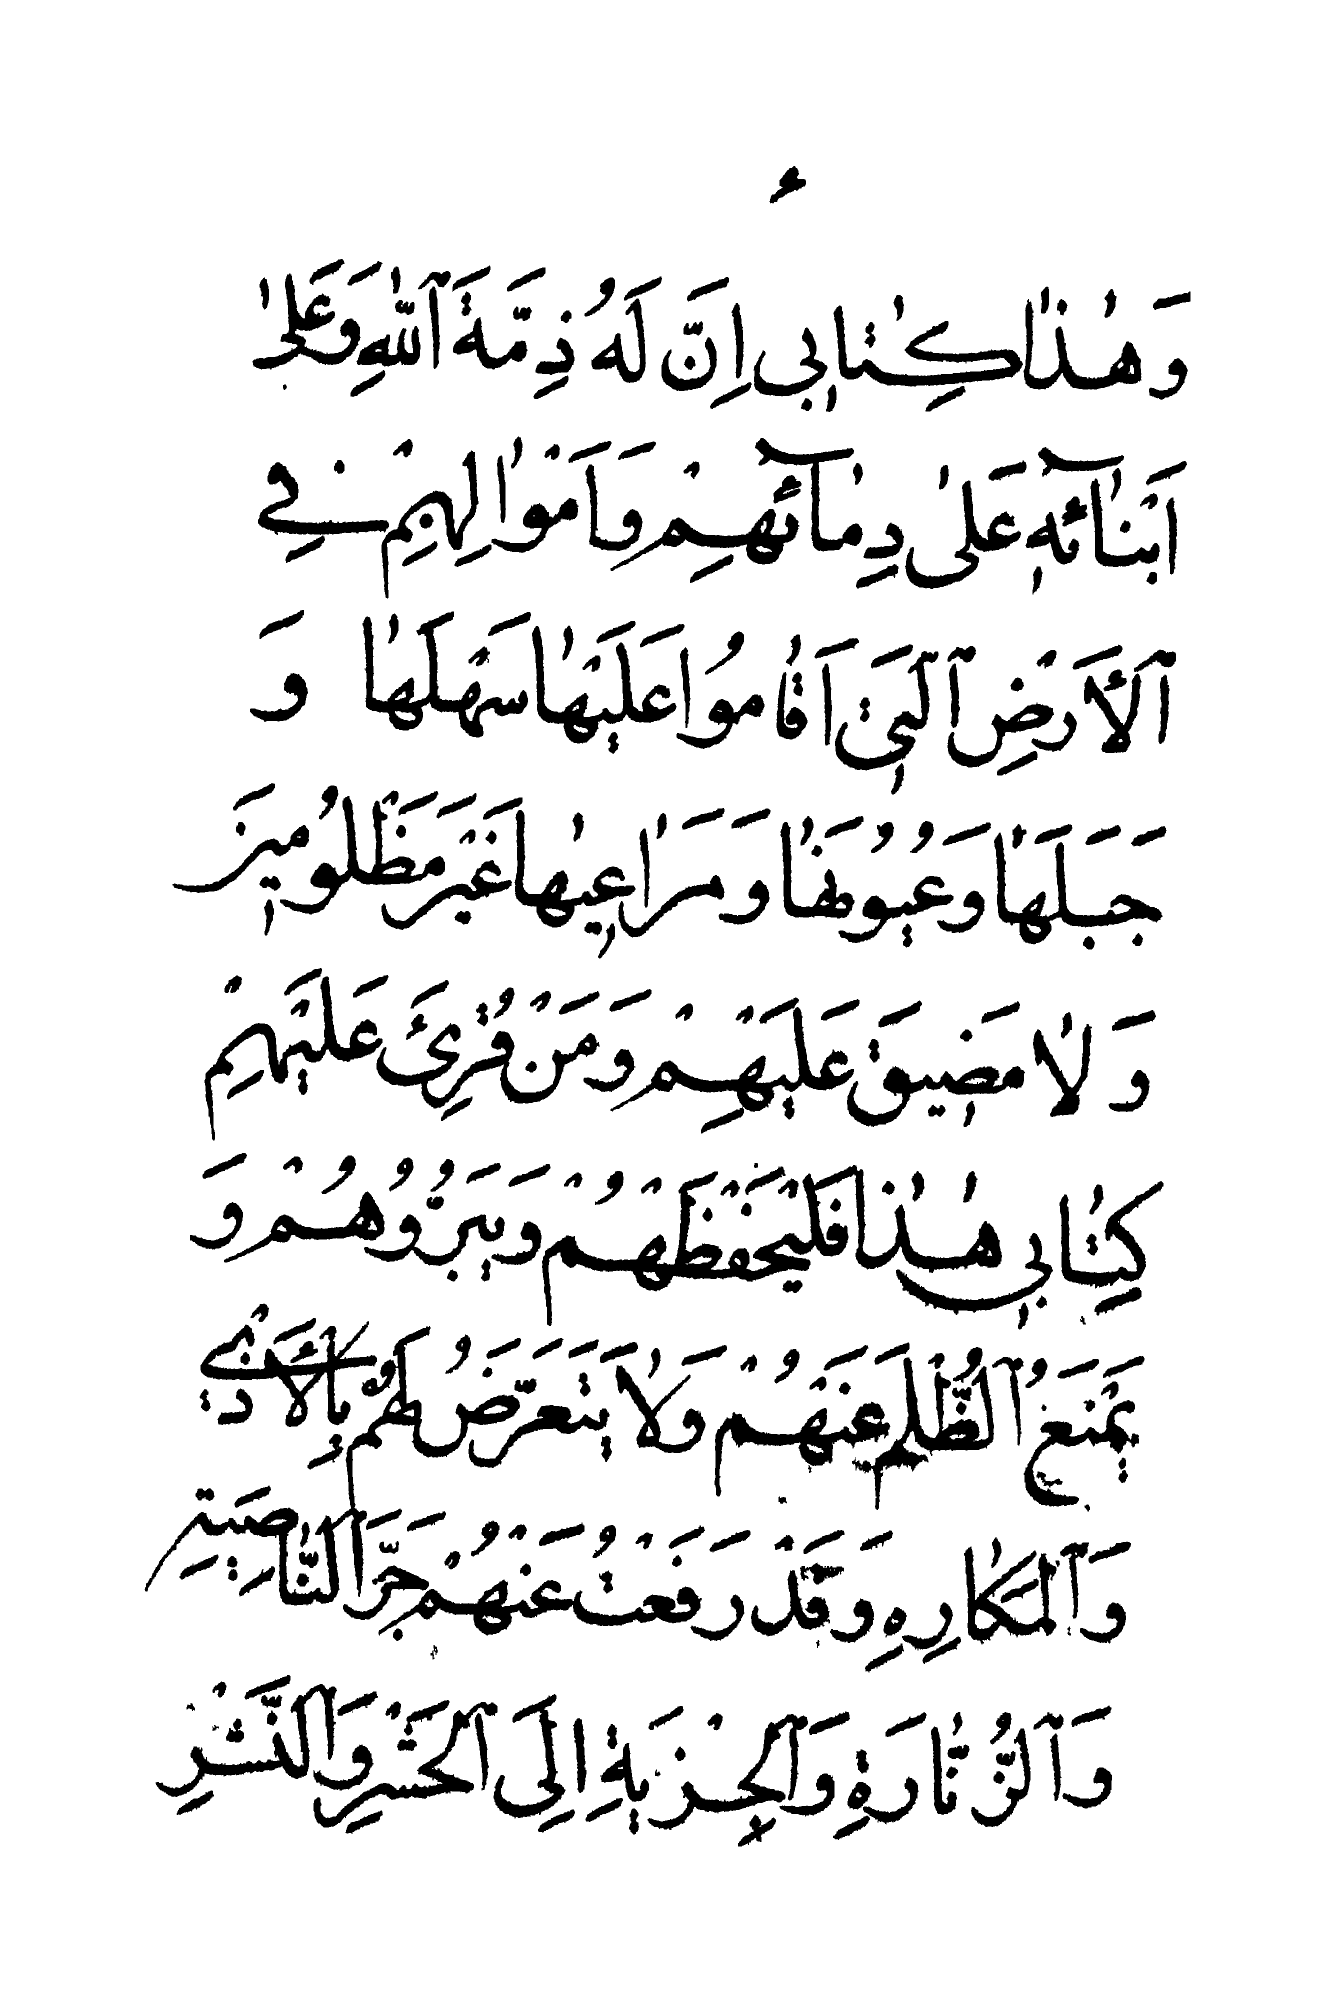 ء
وَهٰذٰا كِتٰابٖي اِنَّ لَهُ ذِمَّةَ ٱللّٰهِ وَعَلىٰ
اَبْنٰٓائِهٖ عَلىٰ دِمٰٓائِهِمْ وَاَمْوٰالِهِمْ فِي
ٱلْأَرْضِ ٱلَّتٖي اَقٰامُوا عَلَيْهٰا سَهْلَهٰا وَ
جَبَلَهٰا وَعُيُونَهٰا وَمَرٰاعٖيهٰا غَيْرَ مَظْلُومٖينَ
وَلٰا مَضٖيقَ عَلَيْهِمْ وَمَنْ قُرِئَ عَلَيْهِمْ
كِتٰابٖي هٰذٰا فَلْيَحْفَظْهُمْ وَيَبَرُّوهُمْ وَ
يَمْنَعُ ٱلظُّلْمَ عَنْهُمْ وَلٰا يَتَعَرَّضُ لَهُمْ بِالْأَذِيَّ
وَٱلْمَكٰارِهِ وَقَدْ رَفَعْتُ عَنْهُمْ جَزَّ ٱلنّٰاصِيَةِ
وَٱلزُّنّٰارَةِ وَٱلْجِزْيَةِ اِلَى ٱلْحَشْرِ وَٱلنَّشْرِ